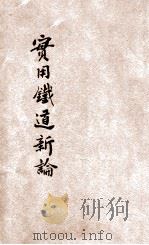 實用鐵道新論
研狗
mtoou.info